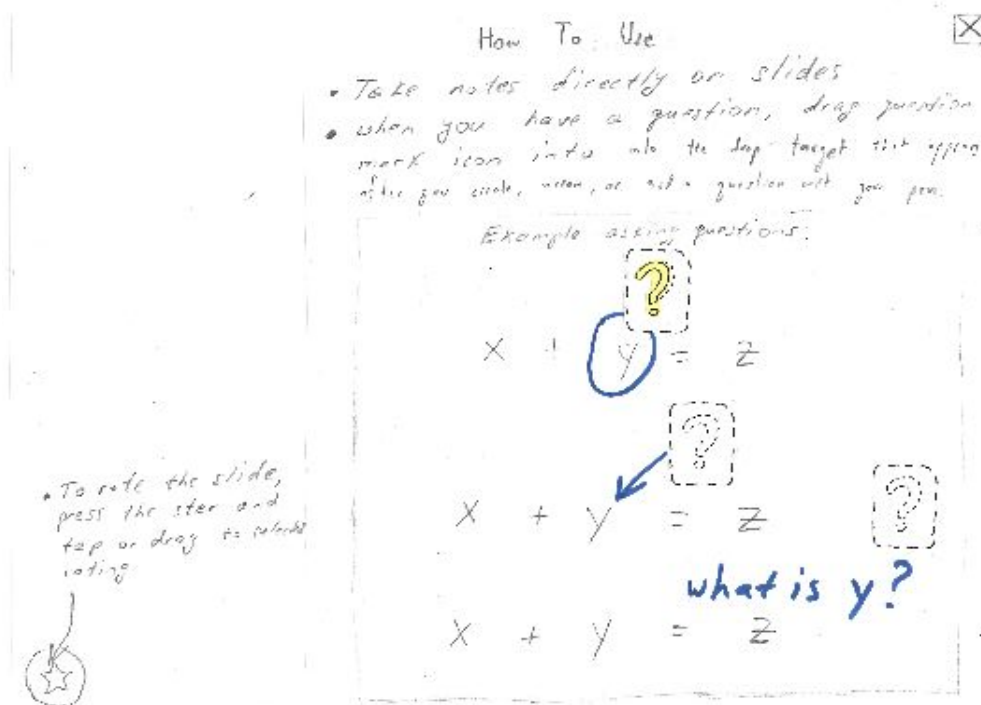 How To Use
• Take notes directly on slides
• when you have a question, drag question
mark icon into into the drop target that appears
after you circle, arrow, or ask a question with your pen.
Example asking questions:
?
x + y = z
?
x + y = z
?
what is y?
x + y = z
• To rate the slide,
press the star and
tap or drag to
rating